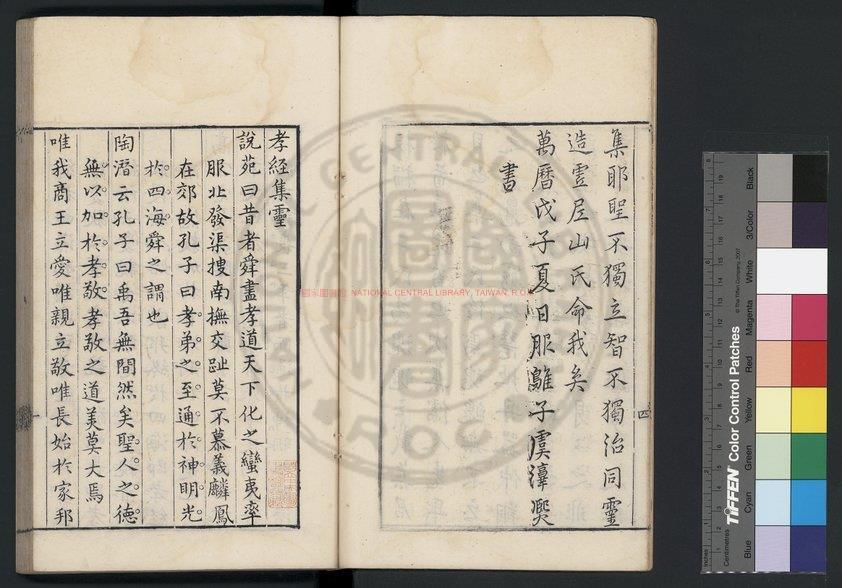 集耶聖不獨立智不獨治同靈
造霊尼山氏命我矣
萬曆戊子夏日服雛子虞淳熙
書
四
孝經集霊
說苑曰昔者舜盡孝道天下化之蠻夷率
服北發渠搜南撫交趾莫不慕義麟鳳
在郊故孔子曰孝弟之至通於神明光
於四海舜之謂也
陶潛云孔子曰禹吾無間然矣聖人之德
無以加於孝敬孝敬之道美莫大焉
唯我商王立愛唯親立敬唯長始於家邦
國家圖書館 NATIONAL CENTRAL LIBRARY, TAIWAN, R.O.C
TIFFEN Color Control Patches
© The Tiffen Company, 2007
Inches
Centimetres
Blue
Cyan
Green
Yellow
Red
Magenta
White
3/Color
Black